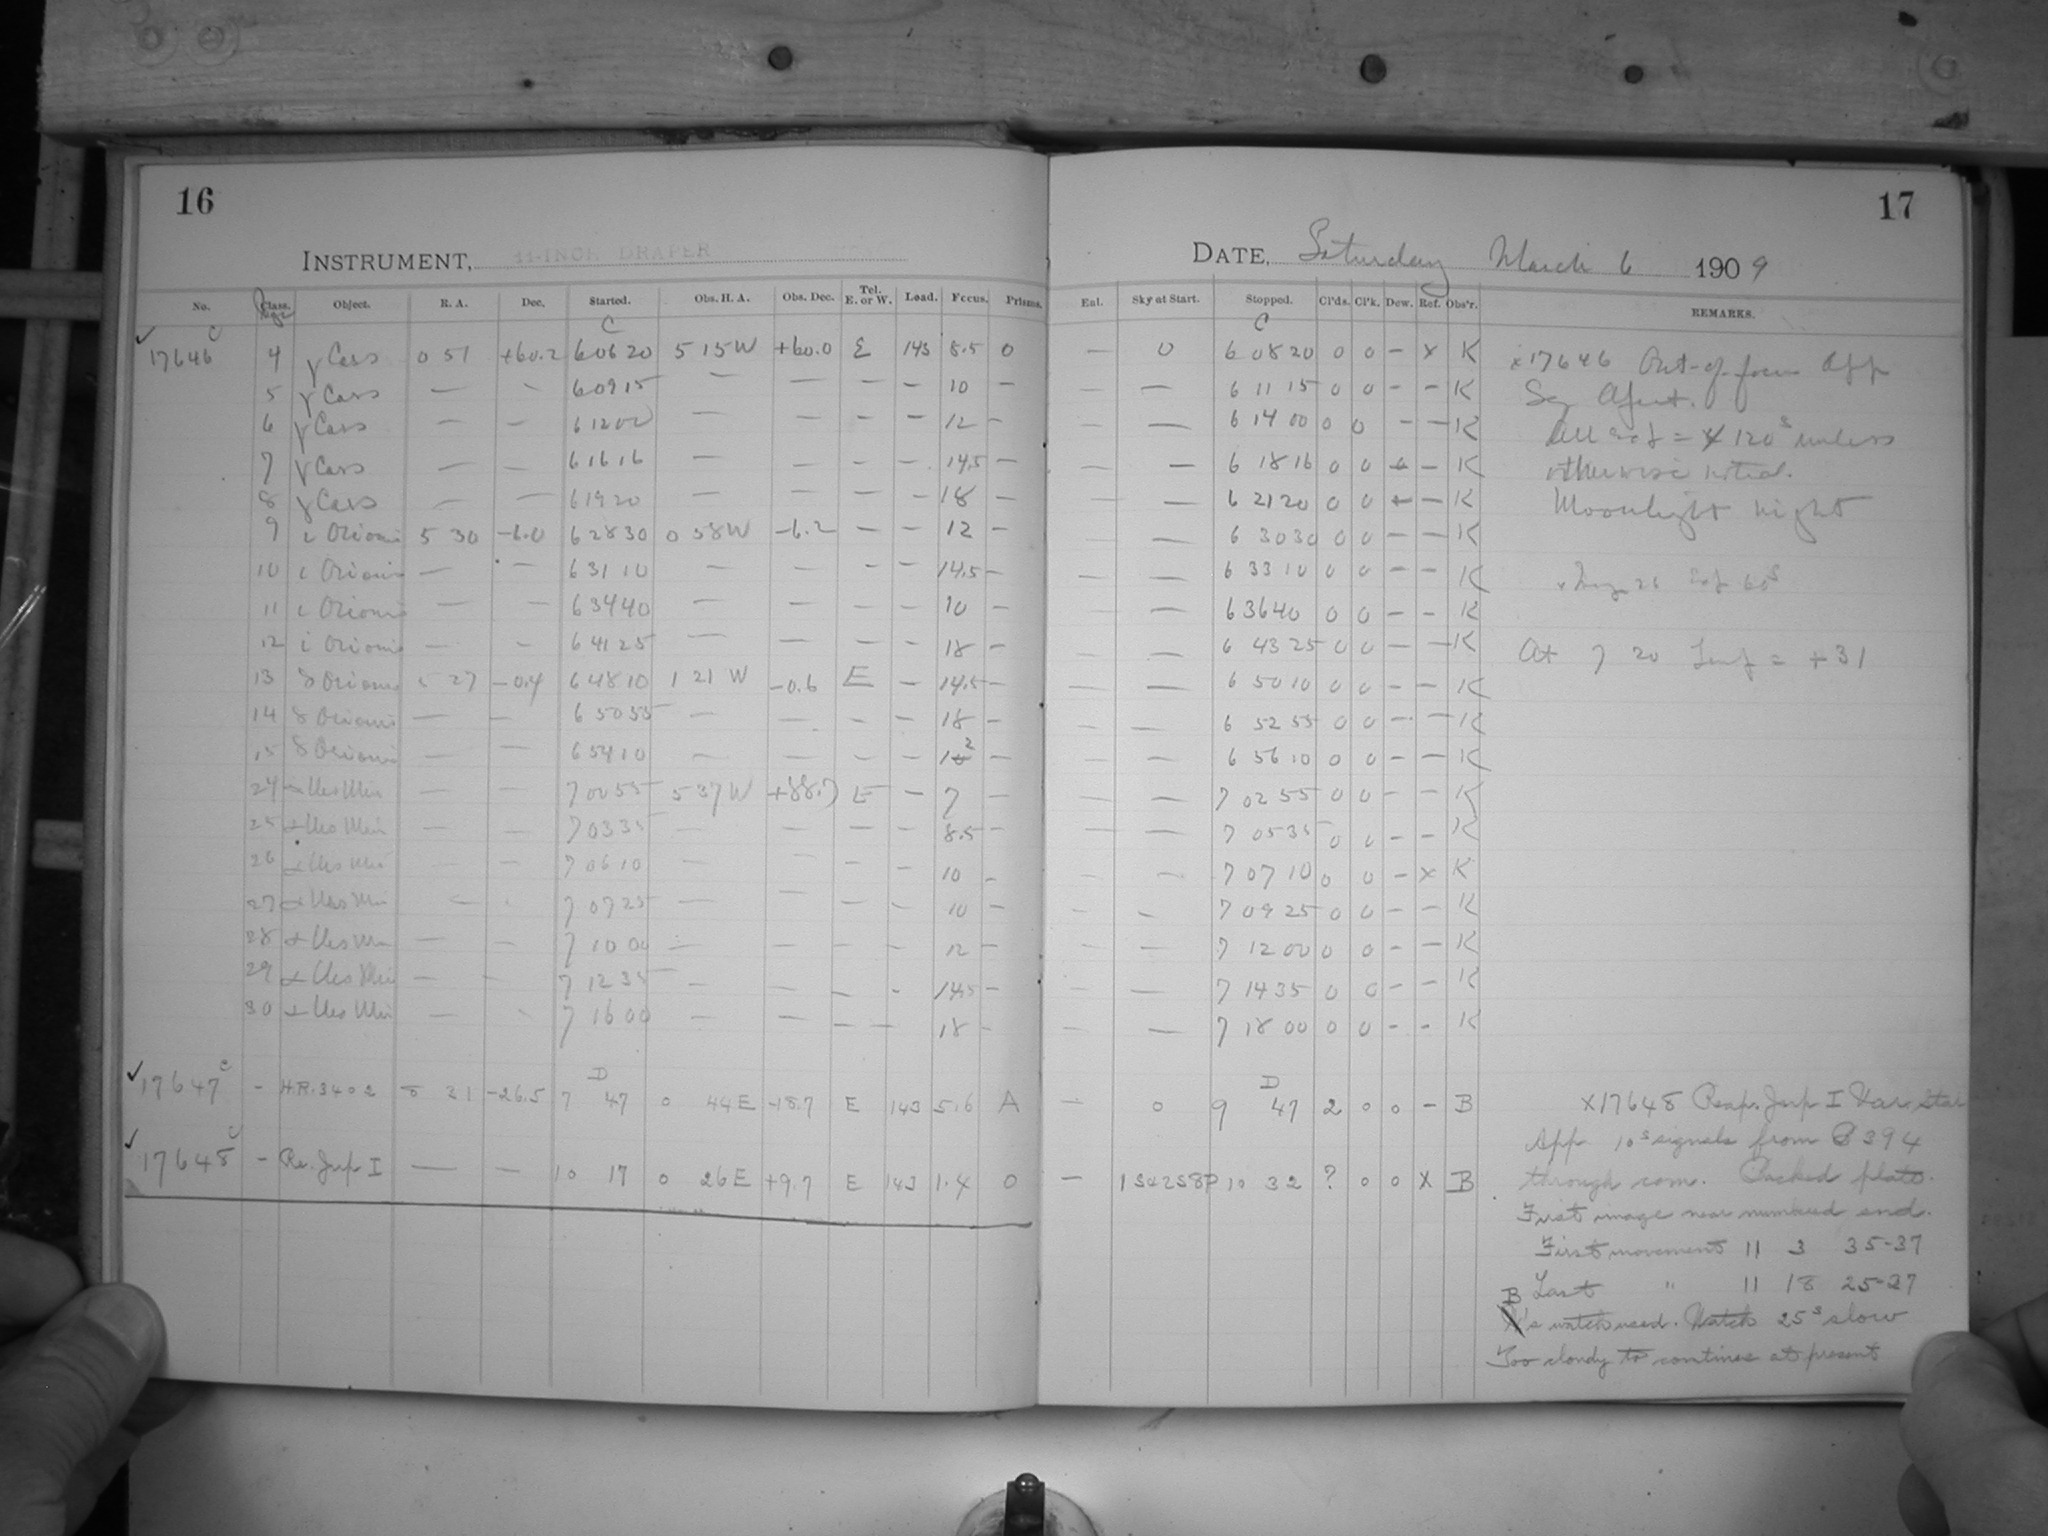 16
INSTRUMENT, 11-INCH DRAPER
No. Class. Object. R. A. Dec. Started. Obs. H. A. Obs. Dec. Tel. E. or W. Load. Focus. Prisms.
C C
17646 4 γ Cass 0 51 +60.2 6 06 20 5 15 W +60.0 E 143 8.5 0
5 γ Cass — — 6 09 15 — — — — 10 —
6 γ Cass — — 6 12 00 — — — — 12 —
7 γ Cass — — 6 16 16 — — — — 14.5 —
8 γ Cass — — 6 19 20 — — — — 18 —
9 ι Orionis 5 30 -6.0 6 28 30 0 58 W -6.2 — — 12 —
10 ι Orionis — — 6 31 10 — — — — 14.5 —
11 ι Orionis — — 6 34 40 — — — — 10 —
12 ι Orionis — — 6 41 25 — — — — 18 —
13 δ Orionis 5 27 -0.4 6 48 10 1 21 W -0.6 E — 14.5 —
14 δ Orionis — — 6 50 55 — — — — 18 —
15 δ Orionis — — 6 54 10 — — — — 12 —
24 α Urs Min — — 7 00 55 5 37 W +88.7 E — 7 —
25 α Urs Min — — 7 03 35 — — — — 8.5 —
26 α Urs Min — — 7 06 10 — — — — 10 —
27 α Urs Min — — 7 07 25 — — — — 10 —
28 α Urs Min — — 7 10 00 — — — — 12 —
29 α Urs Min — — 7 12 35 — — — — 14.5 —
30 α Urs Min — — 7 16 00 — — — — 18 —
C D
17647 — H.R. 3402 8 31 -26.5 7 47 0 44 E -18.7 E 143 5.6 A
C
17648 — Re. Jup I — — 10 17 0 26 E +9.7 E 143 1.4 0
17
DATE, Saturday March 6 1909
Enl. Sky at Start. Stopped. Cl'ds. Cl'k. Dew. Ref. Obs'r. REMARKS.
C
— 0 6 08 20 0 0 — x K
— — 6 11 15 0 0 — — K
— — 6 14 00 0 0 — — K
— — 6 18 16 0 0 — — K
— — 6 21 20 0 0 — — K
— — 6 30 30 0 0 — — K
— — 6 33 10 0 0 — — K
— — 6 36 40 0 0 — — K
— — 6 43 25 0 0 — — K
— — 6 50 10 0 0 — — K
— — 6 52 55 0 0 — — K
— — 6 56 10 0 0 — — K
— — 7 02 55 0 0 — — K
— — 7 05 35 0 0 — — K
— — 7 07 10 0 0 — x K
— — 7 09 25 0 0 — — K
— — 7 12 00 0 0 — — K
— — 7 14 35 0 0 — — K
— — 7 18 00 0 0 — — K
D
— 0 9 47 2 0 0 — B
— 1S42S8P 10 32 ? 0 0 X B
x17646 Out-of-focus App
Sq Apert.
All Exp = 120s unless
otherwise noted.
Moonlight night
x 26 Exp 60s
At 7 20 Temp = +31
X17648 Reap. Jup I Var. Star
App 10s signals from
through com. Backed plate.
First image near numbered end.
First movement 11 3 35-37
Last " 11 18 25-27
B's watch used. Watch 25s slow
Too cloudy to continue at present